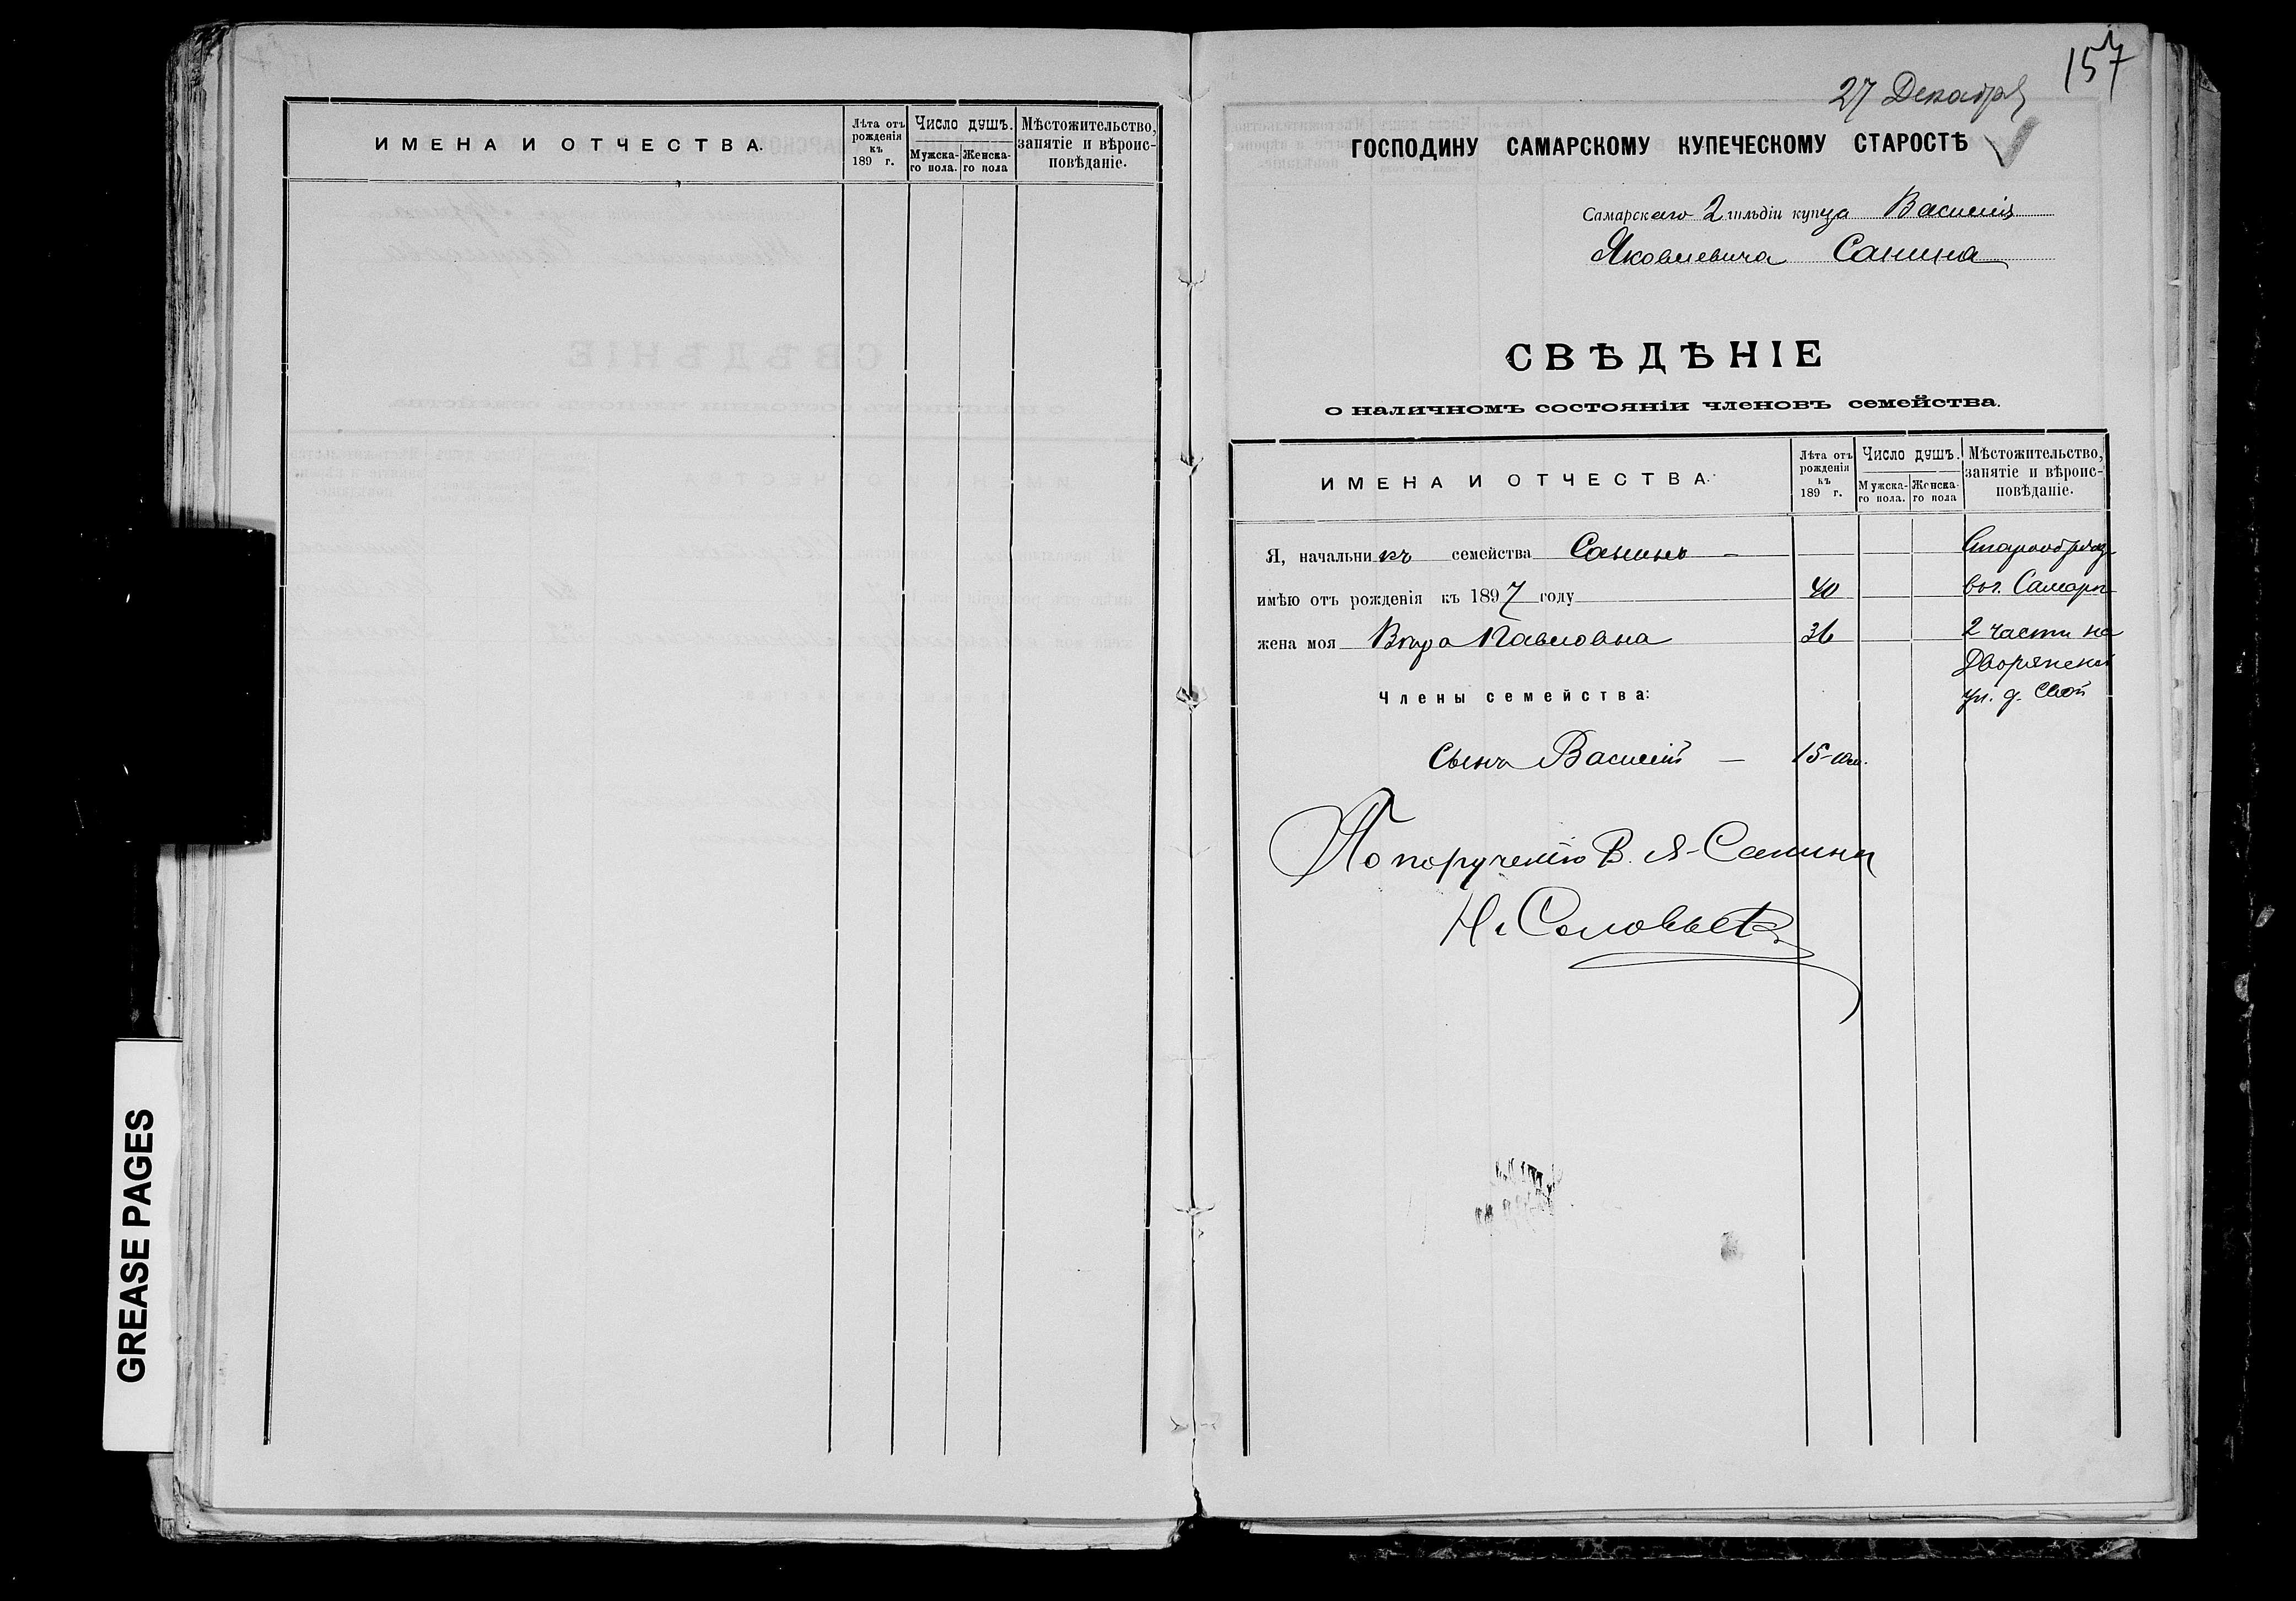 ИМЕНА И ОТЧЕСТВА.
Лѣта отъ рожденія къ 189 г.
Число душъ.
Мужска-го пола.
Женска-го пола
Мѣстожительство, занятіе и вѣроис-повѣданіе.
157
27 Декабря
ГОСПОДИНУ САМАРСКОМУ КУПЕЧЕСКОМУ СТАРОСТѢ
Самарскаго 2 гильдіи купца Василія
Яковлевича Санина
СВѢДѢНІЕ
о наличномъ состояніи членовъ семейства.
ИМЕНА И ОТЧЕСТВА.
Лѣта отъ рожденія къ 189 г.
Число душъ.
Мужска-го пола.
Женска-го пола
Мѣстожительство, занятіе и вѣроис-повѣданіе.
Я, начальникъ семейства Санинъ —
имѣю отъ рожденія къ 1897 году 40 въ г. Самарѣ
жена моя Вѣра Павловна 36 2 части на
Дворянской
Члены семейства: ул. д. свой
Сынъ Василій — 15-
По порученію В. Я. Санина
Н. Соловьевъ
GREASE PAGES